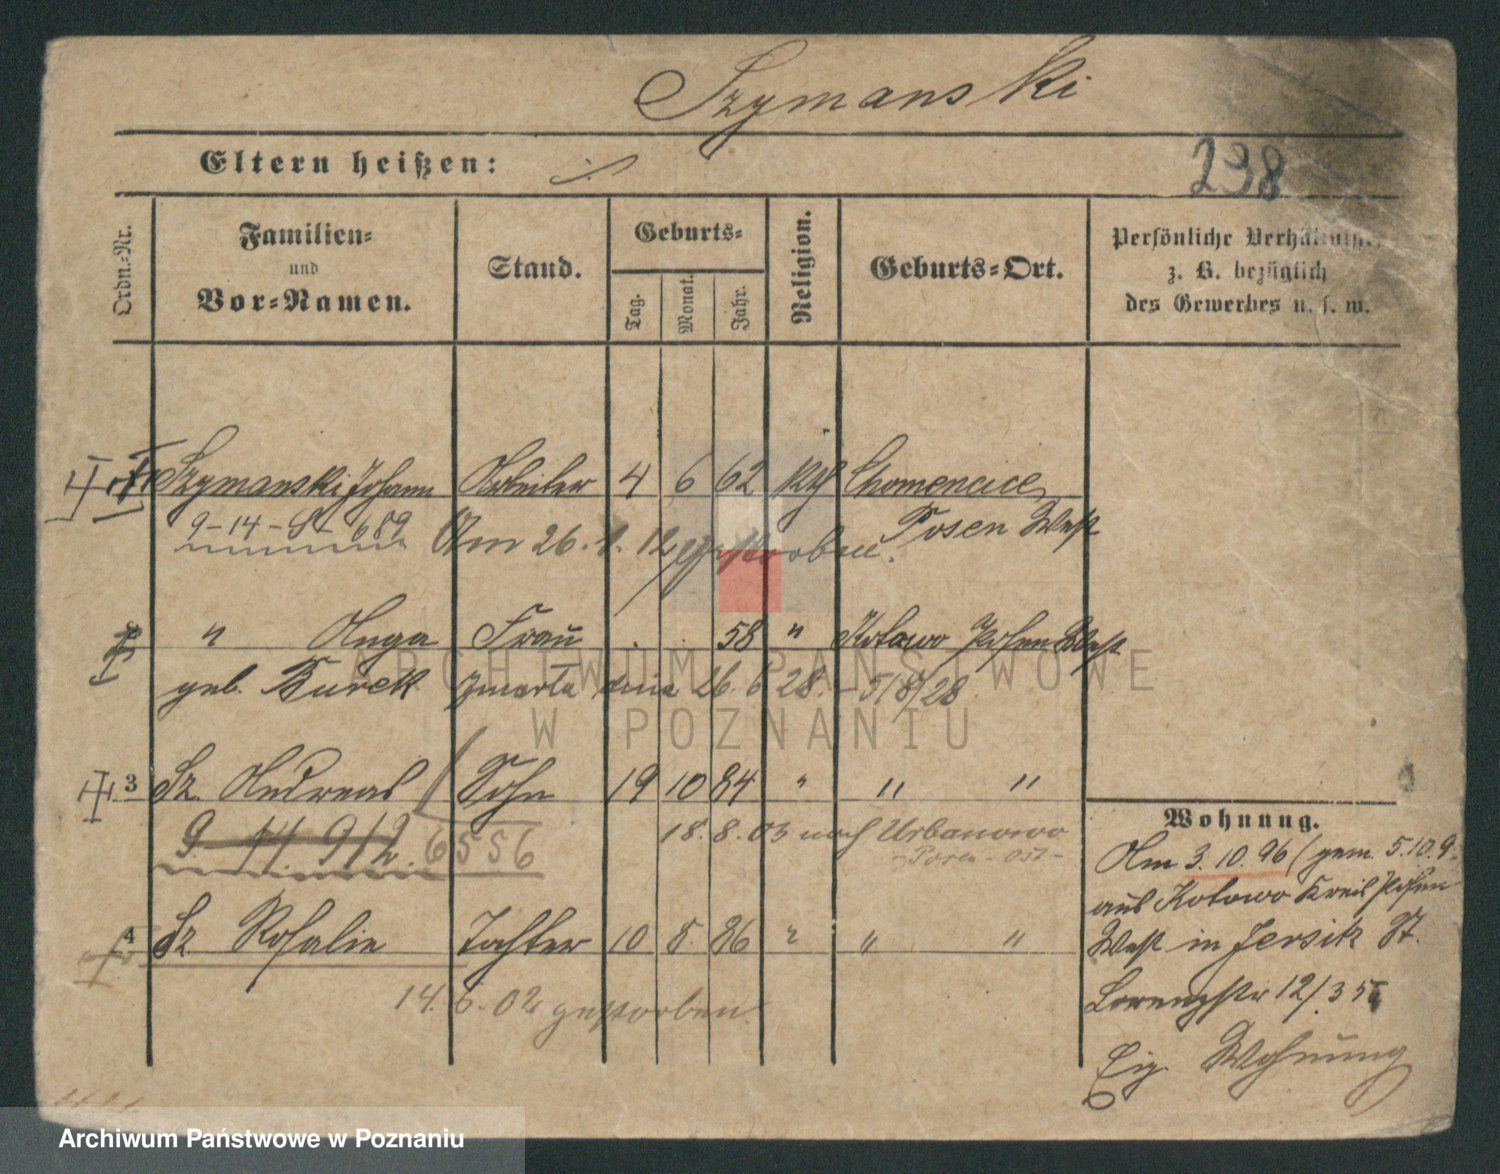 Szymanski
Eltern heißen: ./.
238
Ordn.-Nr.
Familien-
und
Vor-Namen.
Stand.
Geburts-
Tag.
Monat.
Jahr.
Religion.
Geburts-Ort.
Persönliche Verhältnisse,
z. B. bezüglich
des Gewerbes u. s. w.
Szymanski Johann Arbeiter 4 6 62 Chomencice
9-14-8-689 Posen West
Am 26. 1. 12 gestorben.
" Frau . . 58 " Kotowo Posen West
geb. Burek zmarła dnia 26. 6 28. - 5/8/28
3 Sz. Andreas Sohn 19 10 84 " " "
9. 14. 912. 6556 18. 8. 03 nach Urbanowo
- Posen - Ost -
4 Sz. Rosalie Tochter 10 8. 86 " " "
14. 6. 02 gestorben.
Wohnung.
Am 3. 10. 96 (gem. 5. 10. 9
aus Kotowo Kreis Posen
West in Jersitz St.
Lorenzstr 12/.
Eig. Wohnung
ARCHIWUM PAŃSTWOWE
W POZNANIU
Archiwum Państwowe w Poznaniu